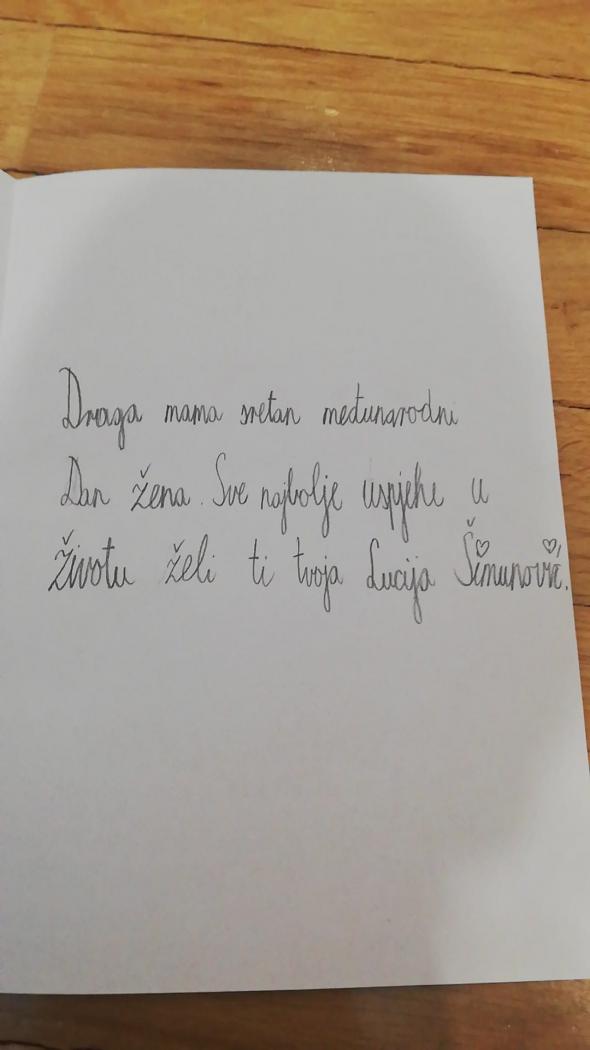 Draga mama sretan međunarodni
Dan žena. Sve najbolje uspjehe u
životu želi ti tvoja Lucija Šimunović.